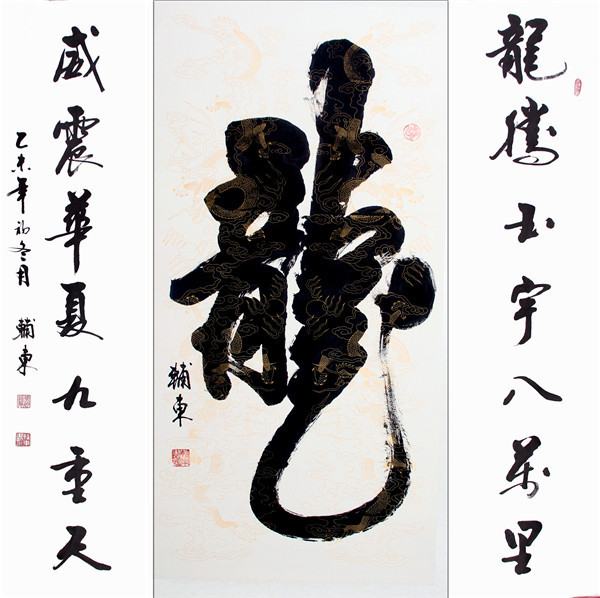 龍騰玉宇八萬里
龍
輔東
威震華夏九重天
乙未年初冬月 輔東